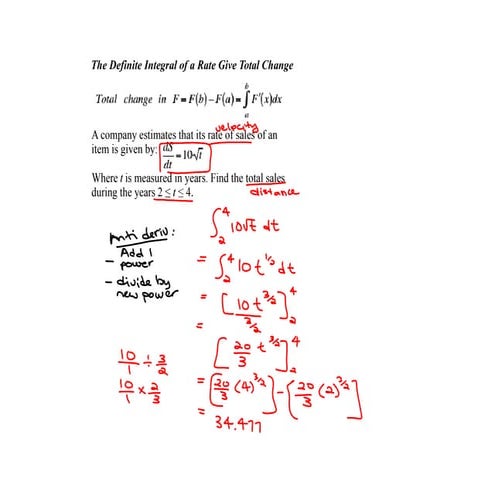 The Definite Integral of a Rate Give Total Change
Total change in F = F(b) – F(a) = ∫ₐᵇ F'(x)dx
velocity
A company estimates that its rate of sales of an
item is given by: dS/dt = 10√t
Where t is measured in years. Find the total sales
during the years 2 ≤ t ≤ 4.
distance
Anti deriv:
- Add 1
power
- divide by
new power
∫₂⁴ 10√t dt
= ∫₂⁴ 10 t^1/2 dt
= [10 t^3/2 / 3/2]₂⁴
= [20/3 t^3/2]₂⁴
10/1 ÷ 3/2
10/1 × 2/3
= [20/3 (4)^3/2] - [20/3 (2)^3/2]
= 34.477